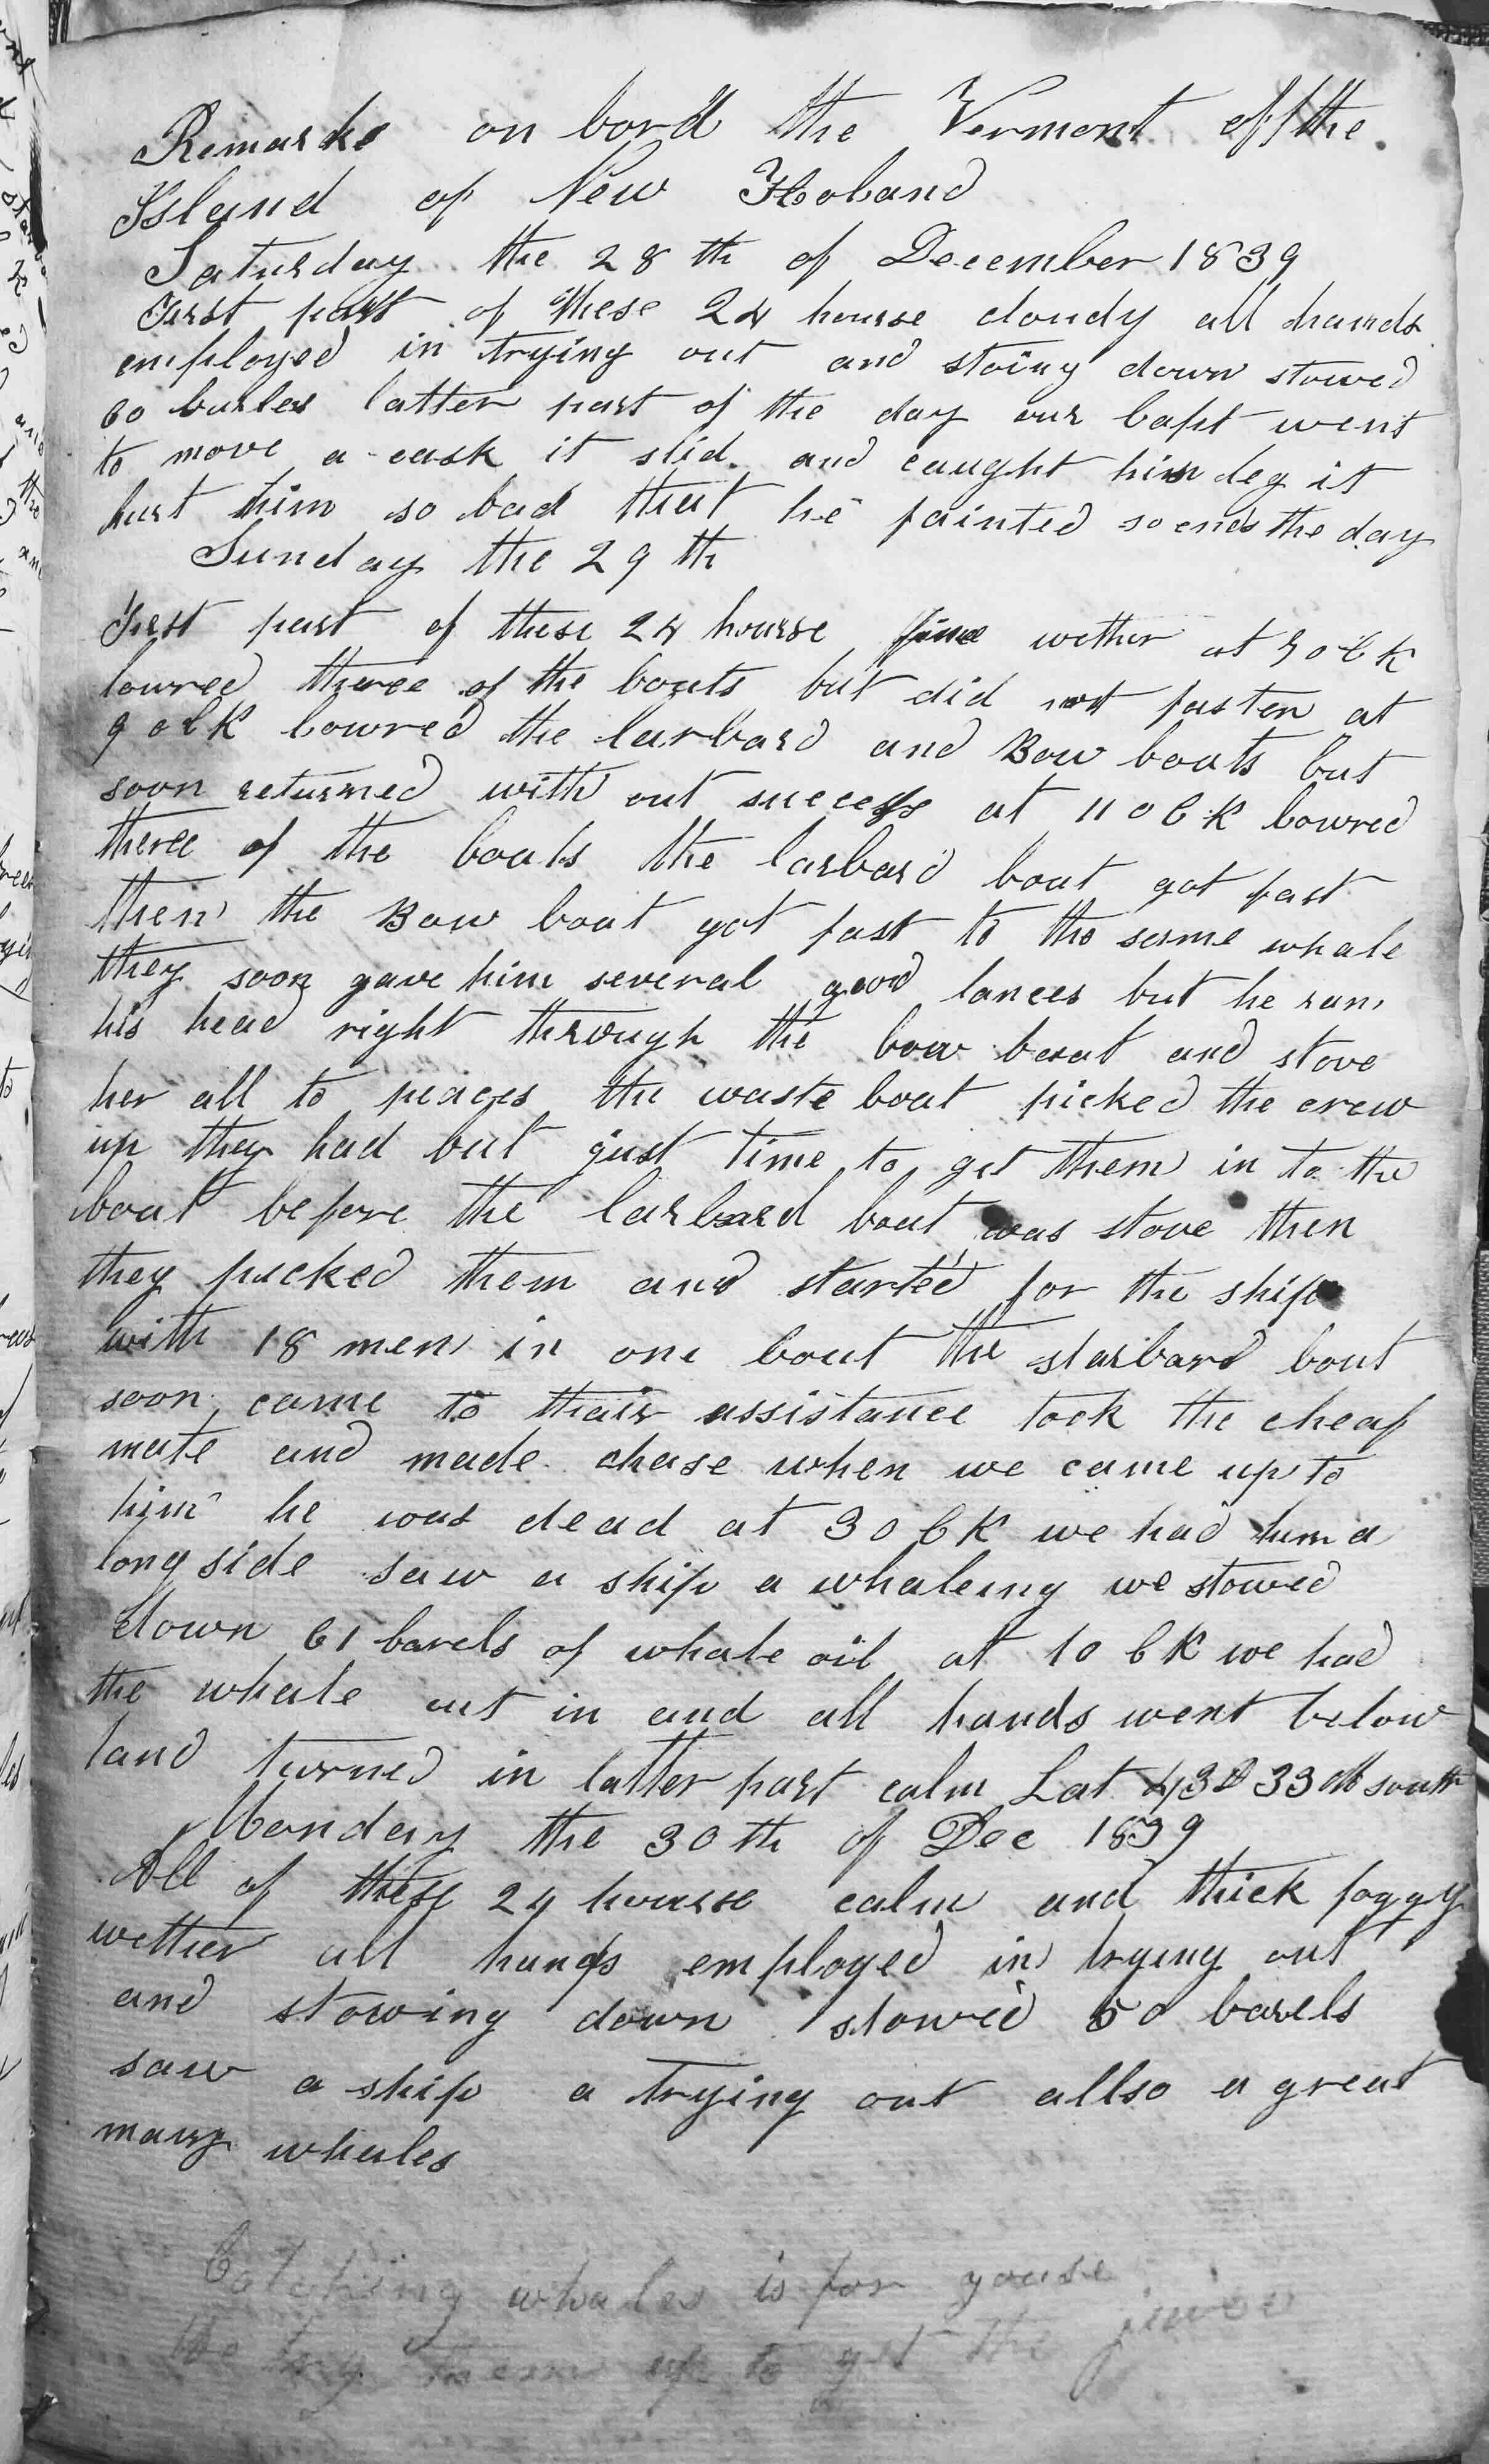 Remarks on bord the Vermont off the
Island of New Holand
Saturday the 28 th of December 1839
First part of these 24 hourse cloudy all hands
employed in trying out and stoing down stowed
60 barles latter part of the day our Capt went
to move a cask it slid and caught him leg it
hurt him so bad that he fainted so ends the day
Sunday the 29 th
First part of these 24 hourse fine wether at 5 o C K
lowred three of the boats but did not fasten at
9 o C K lowred the larbard and Bow boats but
soon returned with out success at 11 o C K lowred
theree of the boats the larbard boat got fast
then the Bow boat got fast to the same whale
they soon gave him several good lances but he run
his head right through the bow boat and stove
her all to peaces the waste boat picked the crew
up they had but gust time to get them in to the
boat before the larboard boat was stove then
they picked them and started for the ship
with 18 men in one boat the starbard boat
soon came to thair assistance took the cheaf
mate and made chase when we came up to
him he was dead at 3 o C K we had him a
long side saw a ship a whaleing we stowed
down 61 barels of whale oil at 10 C K we had
the whale cut in and all hands went below
land turned in latter part calm Lat 43 D 33 M south
Monday the 30 th of Dec 1839
All of these 24 hourse calm and thick foggy
wether all hands employed in trying out
and stowing down stowed 50 barels
saw a ship a trying out allso a great
many whales
Catching whales is for youse
We try them up to get the juice